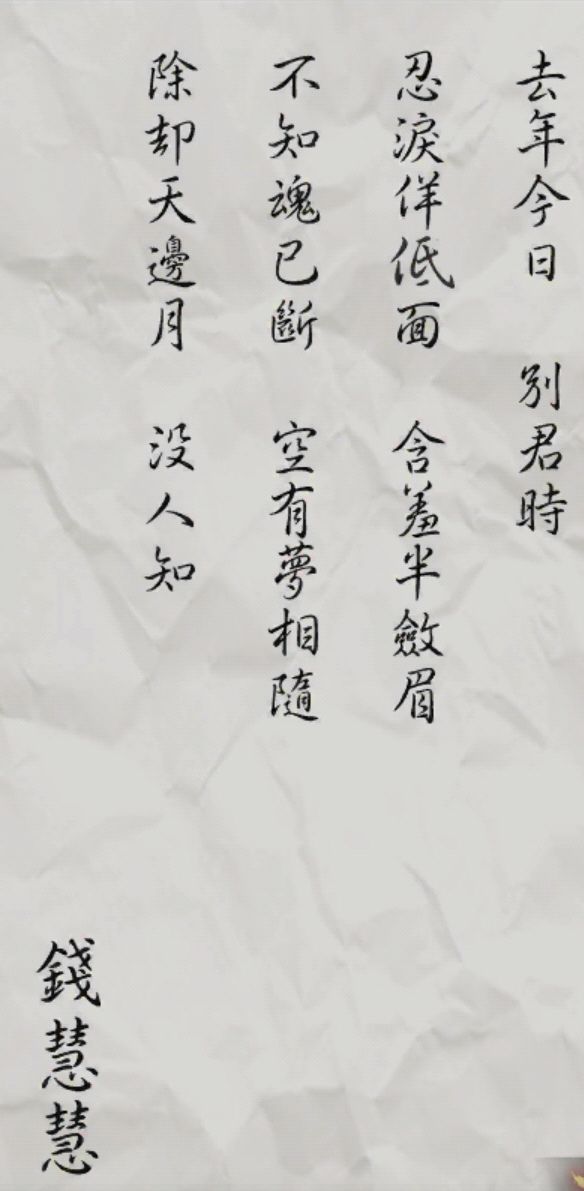 去年今日 别君時
忍淚佯低面 含羞半斂眉
不知魂已斷 空有夢相隨
除却天邊月 没人知
錢慧慧